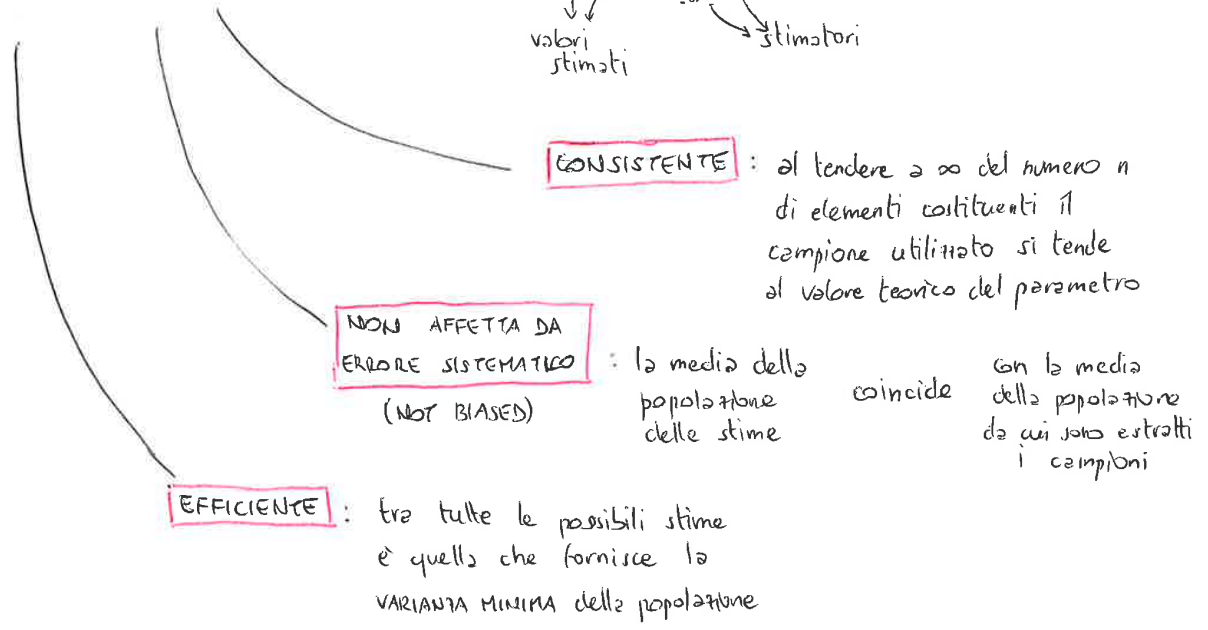 valori
stimati
stimatori
CONSISTENTE : al tendere a ∞ del numero n
di elementi costituenti il
campione utilizzato si tende
al valore teorico del parametro
NON AFFETTA DA
ERRORE SISTEMATICO : la media della
popolazione
delle stime
(NOT BIASED)
coincide
con la media
della popolazione
da cui sono estratti
i campioni
EFFICIENTE : tra tutte le possibili stime
è quella che fornisce la
VARIANZA MINIMA della popolazione